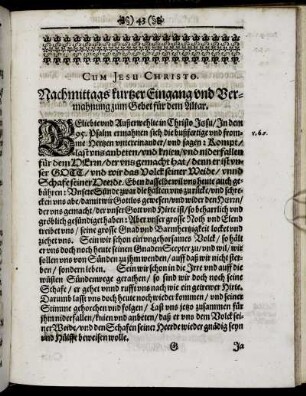 43
CUM JESU CHRISTO.
Nachmittags kurtzer Eingang vnd Ver-
mahnung zum Gebet für dem Altar.
GEliebte vnd Außerwehlte in Christo Jesu / In dem
95. Psalm ermahnen sich die bußfertige vnd from-
me Hertzen vntereinander / vnd sagen: Kompt /
v. 6.
laßt vns anbeten / vnd knien / vnd niderfallen
für dem HErrn / der vns gemacht hat / denn er ist vn-
ser GOTT / vnd wir das Volck seiner Weide / vnd
Schafe seiner Heerde. Eben dasselbe wil vns heute auch ge-
bühren: Vnsere Sünde zwar die halten vns zurücke / vnd schre-
cken vns abe / damit wir Gottlos gewesen / vnd wider den Herrn /
der vns gemacht / der vnser Gott vnd Hirte ist / so beharlich vnd
gröblich gesündiget haben: Aber vnser grosse Noth vnd Elend
treibet vns / seine grosse Gnad vnd Barmhertzigkeit locket vnd
ziehet vns. Sein wir schon ein vngehorsames Volck / so hält
er vns doch noch heute seinen GnadenScepter zu / vnd wil / wir
sollen vns von Sünden zu ihm wenden / auff daß wir nicht ster-
ben / sondern leben. Sein wir schon in die Irre vnd auff die
wüsten Sündenwege gerathen / so sind wir doch noch seine
Schafe / er gehet vnd rufft vns nach wie ein getrewer Hirte.
Darumb laßt vns doch heute noch wieder kommen / vnd seiner
Stimme gehorchen vnd folgen / Laßt vns jetzo zusammen für
ihm niderfallen / knien vnd anbeten / daß er vns dem Volck sei-
ner Weide / vnd den Schafen seiner Heerde wieder gnädig seyn
vnd Hülffe beweisen wolle.
G Ja